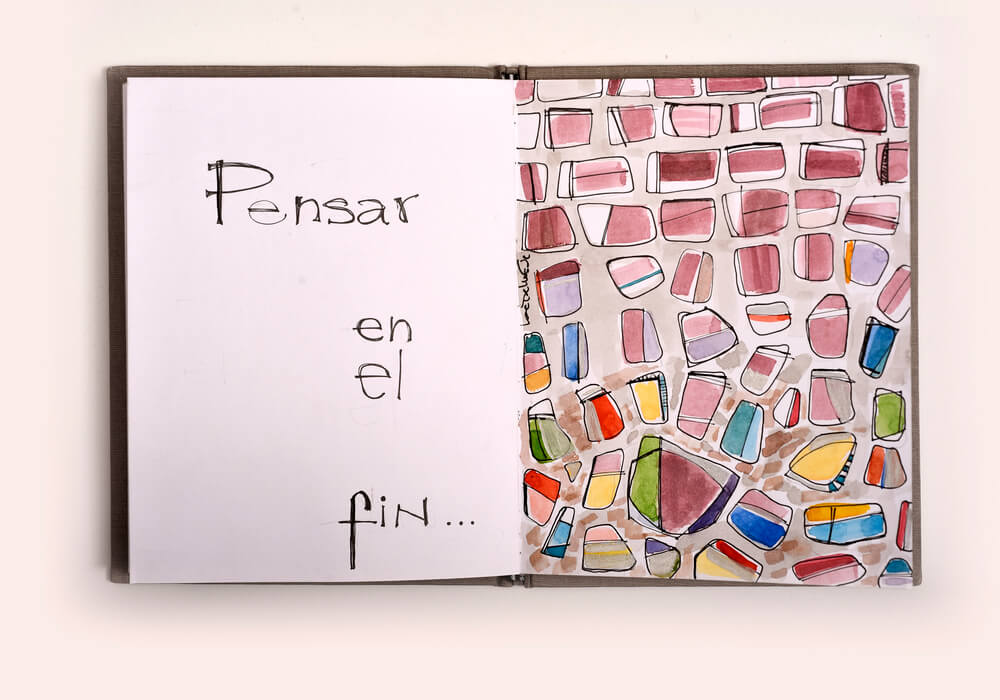 Pensar
en
el
fin...